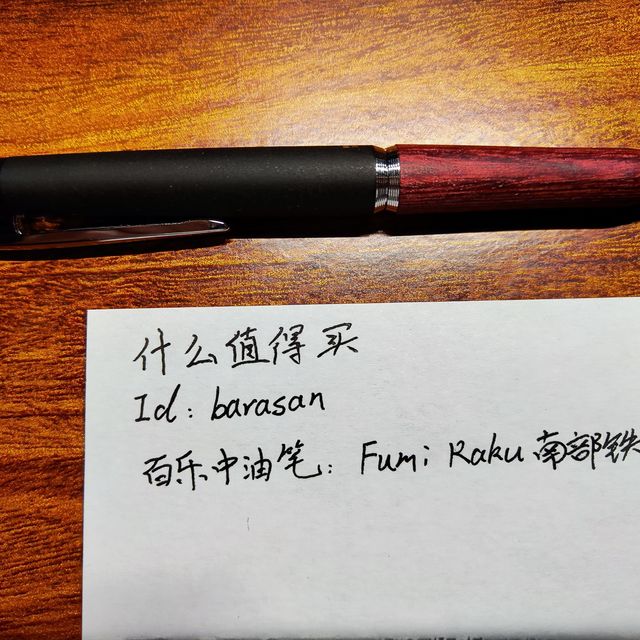 什么值得买
Id: barasan
百乐中油笔: Fumi Raku 南部铁